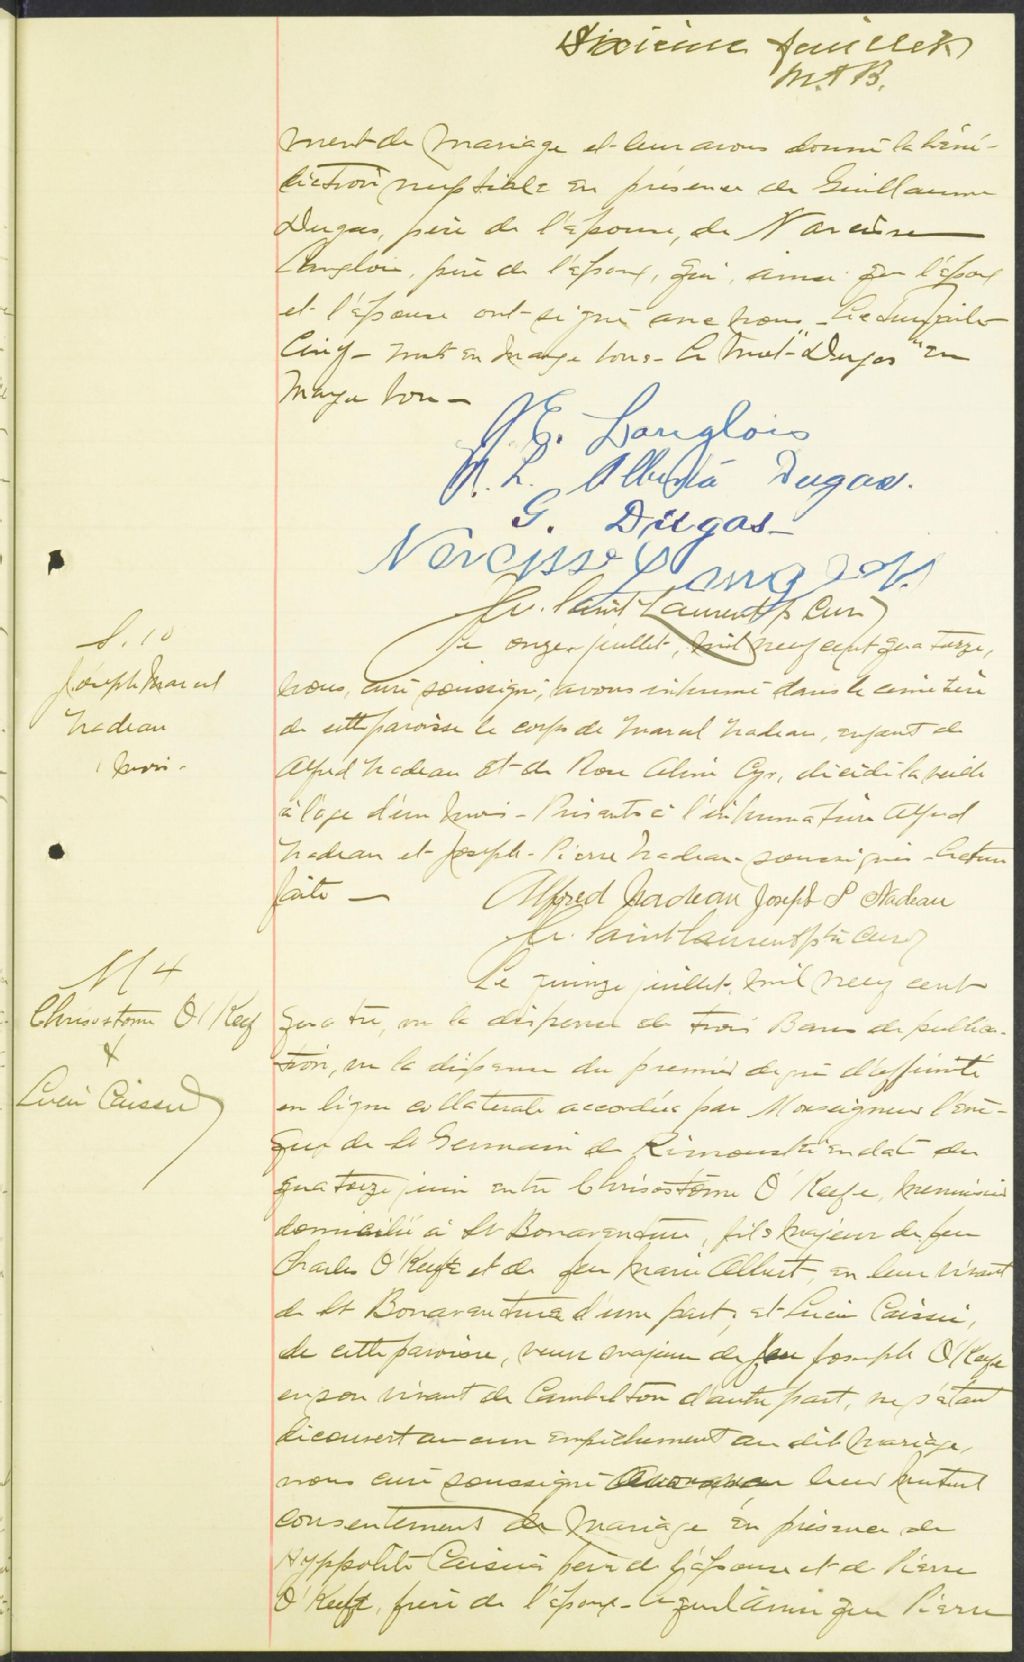 Dixième feuillet
M.A B.
ment de mariage et leur avons donné la béné-
diction nuptiale en présence de Guillaume
Dugas, père de l'épouse, de Narcisse
Langlois, père de l'époux, qui, ainsi que l'époux
et l'épouse ont signé avec nous - Lecture faite
Cinq - mots en marge bons - le mot "Dugas" en
marge bon -
J. E. Langlois
M. L. Alberta Dugas.
G. Dugas -
Narcisse Langlois
J. Saint Laurent ptre Curé
S. 10
Joseph Marcel
Nadeau
1 mois.
Le onze juillet, mil neuf cent quatorze,
nous, curé soussigné, avons inhumé dans le cimetière
de cette paroisse le corps de Marcel Nadeau, enfant de
Alfred Nadeau et de Rose Aline Cyr, décédé la veille
à l'âge d'un mois - Présents à l'inhumation Alfred
Nadeau et Joseph-Pierre Nadeau - soussignés - Lecture
faite -
Alfred Nadeau Joseph P Nadeau
J. Saint Laurent ptre Curé
M 4
Chrisostome O'Keefe
&
Lucie Caissie
Le quinze juillet, mil neuf cent
quatre, vu la dispense de trois Bans de publica-
tion, vu la dispense du premier degré d'affinité
en ligne collatérale accordée par Monseigneur l'évê-
que de St Germain de Rimouski en date du
quatorze juin entre Chrisostôme O'Keefe, menuisier
domicilié à St Bonaventure, fils majeur de feu
Charles O'Keefe et de feu Marie Albert, en leur vivant
de St Bonaventure d'une part, et Lucie Caissie,
de cette paroisse, veuve majeure de feu Joseph O'Keefe
en son vivant de Cambelton d'autre part, ne s'étant
découvert aucun empêchement au dit mariage,
nous curé soussigné leur mutuel
consentement de mariage en présence de
Hyppolite Caissie père de l'épouse et de Pierre
O'Keefe, frère de l'époux - ainsi que Pierre